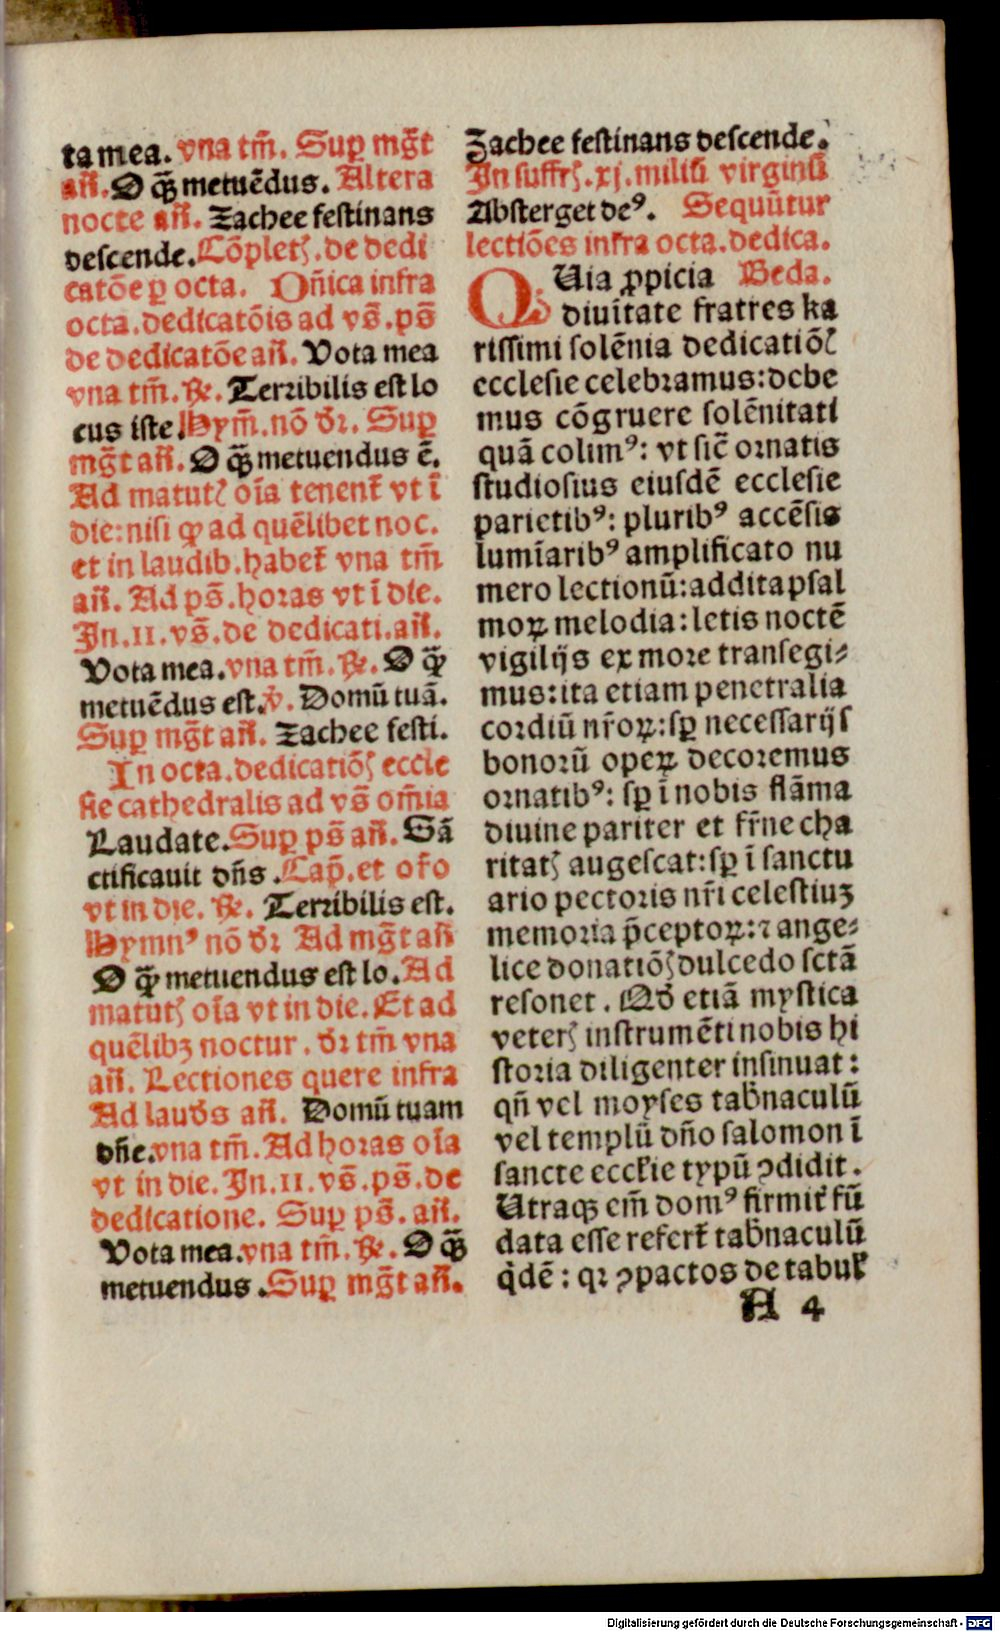 ta mea. vna tm̄. Sup mḡt
añ. O q̄ȝ metuēdus. Altera
nocte añ. Zachee festinans
descende. Cōpletꝭ. de dedi
catōe ꝑ octa. Dn̄ica infra
octa. dedicatōis ad vs̄. ps̄
de dedicatōe añ. Vota mea
vna tm̄. ℟. Terribilis est lo
cus iste. Hym̄. nō dr̄. Sup
mḡt añ. O q̄ȝ metuendus ē.
Ad matutꝭ oīa tenent̄ vt ī
die: nisi ꝙ ad quēlibet noc.
et in laudib. habet̄ vna tm̄
añ. Ad ps̄. horas vt ī die.
In .II. vs̄. de dedicati. añ.
Vota mea. vna tm̄. ℟. O q̄ȝ
metuēdus est. ℣. Domū tuā.
Sup mḡt añ. Zachee festi.
In octa. dedicatiōꝭ eccle
sie cathedralis ad vs̄ om̄ia
Laudate. Sup ps̄ añ. Sā
ctificauit dn̄s. Cap̄. et or̄o
vt in die. ℟. Terribilis est.
Hymnꝰ nō dr̄ Ad mḡt añ
O q̄ȝ metuendus est lo. Ad
matutꝭ oīa vt in die. Et ad
quēlibꝫ noctur. dr̄ tm̄ vna
añ. Lectiones quere infra
Ad laud̄s añ. Domū tuam
dn̄e. vna tm̄. Ad horas oīa
vt in die. In .II. vs̄. ps̄. de
dedicatione. Sup ps̄. añ.
Vota mea. vna tm̄. ℟. O q̄ȝ
metuendus. Sup mḡt añ.
Zachee festinans descende.
In suffrꝭ. xj. miliū virginū
Absterget deꝰ. Sequūtur
lectiōes infra octa. dedica.
QUia ꝓpicia Beda.
diuītate fratres ka
rissimi solēnia dedicatiōꝭ
ecclesie celebramus: debe
mus cōgruere solēnitati
quā colimꝰ: vt sic̄ ornatis
studiosius eiusdē ecclesie
parietibꝰ: pluribꝰ accēsis
lumīaribꝰ amplificato nu
mero lectionū: addita psal
moꝝ melodia: letis noctē
vigilijs ex more transegi⸗
mus: ita etiam penetralia
cordiū nr̄oꝝ: sꝑ necessarijs
bonorū opeꝝ decoremus
ornatibꝰ: sꝑ ī nobis flāma
diuine pariter et fr̄ne cha
ritatꝭ augescat: sꝑ ī sanctu
ario pectoris nr̄i celestiuꝫ
memoria p̄ceptoꝝ: ⁊ ange⸗
lice donatiōꝭ dulcedo sctā
resonet. Qd̄ etiā mystica
veterꝭ instrumēti nobis hi
storia diligenter insinuat:
qn̄ vel moyses tab̄naculū
vel templū dn̄o salomon ī
sancte eccl̄ie typū ꝯdidit.
Utraqꝫ em̄ domꝰ firmit̄ fū
data esse refert̄ tab̄naculū
q̇dē: qꝛ ꝯpactos de tabul̄
A 4
Digitalisierung gefördert durch die Deutsche Forschungsgemeinschaft - DFG